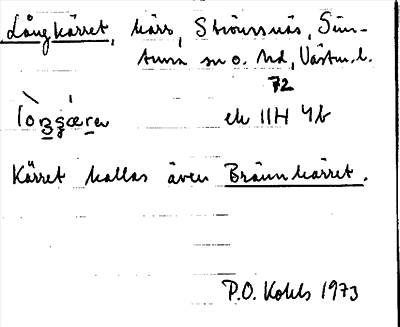 Långkärret, kärr, Strömsnäs, Sim-
tuna sn o. hd, Västm.l.
72
lòŋgærə ek 11H 4b
Kärret kallas även Brännkärret.
P.O. Kohls 1973